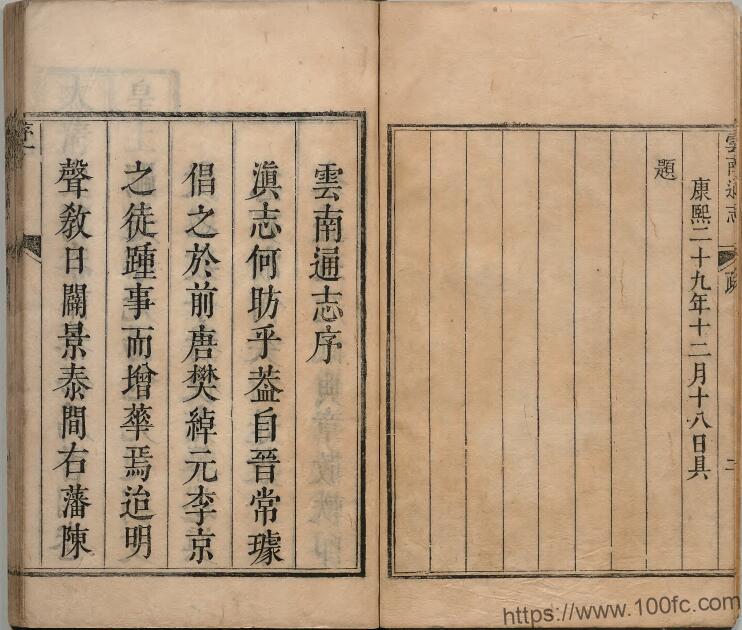 雲南通志
疏
二
康熙二十九年十二月十八日具
題
雲南通志序
滇志何昉乎葢自晉常璩
倡之於前唐樊綽元李京
之徒踵事而增華焉迨明
聲敎日闢景泰間右藩陳
序
一
https://www.100fc.com